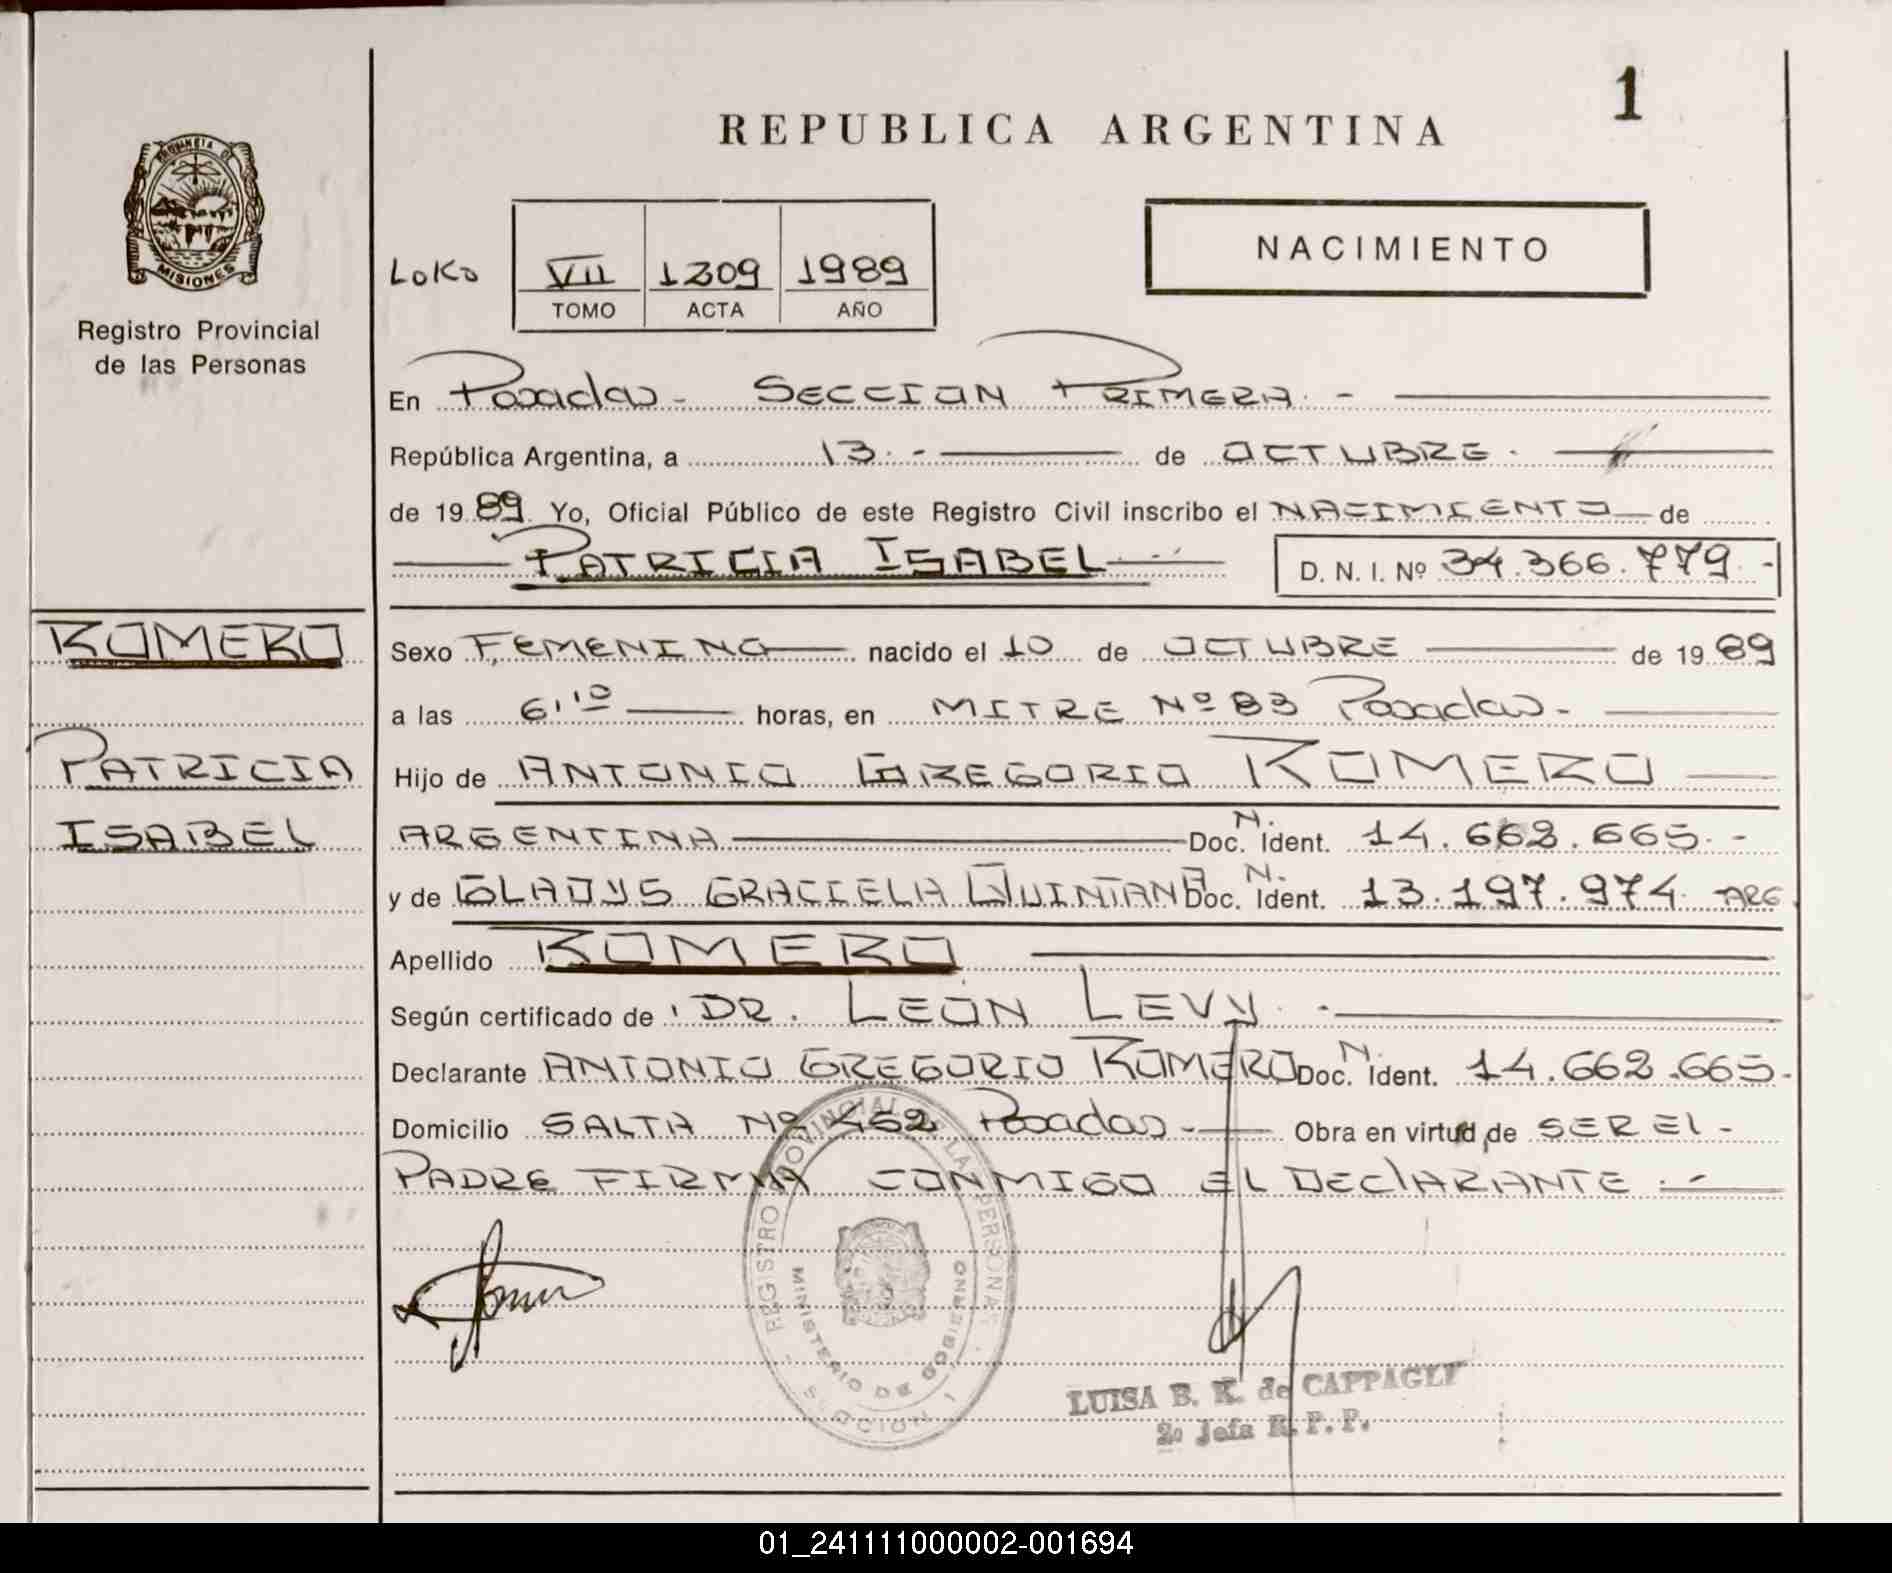 REPUBLICA ARGENTINA
1
PROVINCIA DE
MISIONES
Registro Provincial
de las Personas
LOKO
VII 1209 1989
TOMO ACTA AÑO
NACIMIENTO
En Posadas - SECCION PRIMERA. -
República Argentina, a 13. - de OCTUBRE.
de 1989 Yo, Oficial Público de este Registro Civil inscribo el NACIMIENTO de
PATRICIA ISABEL D. N. I. Nº 34.366.779. -
ROMERO
PATRICIA
ISABEL
Sexo FEMENINO nacido el 10 de OCTUBRE de 1989
a las 6'10 horas, en MITRE Nº 83 Posadas -
Hijo de ANTONIO GREGORIO ROMERO
ARGENTINA Doc. N. Ident. 14.662.665. -
y de GLADYS GRACIELA QUINTANA Doc. N. Ident. 13.197.974 ARG
Apellido ROMERO
Según certificado de DR. LEON LEVY. -
Declarante ANTONIO GREGORIO ROMERO Doc. N. Ident. 14.662.665.
Domicilio SALTA Nº 452 Posadas - Obra en virtud de SER EL -
PADRE FIRMA CONMIGO EL DECLARANTE. -
REGISTRO PROVINCIAL DE LAS PERSONAS
MINISTERIO DE GOBIERNO
SECCION 1
LUISA B. K. de CAPPAGLY
2º Jefa R. P. P.
01_241111000002-001694